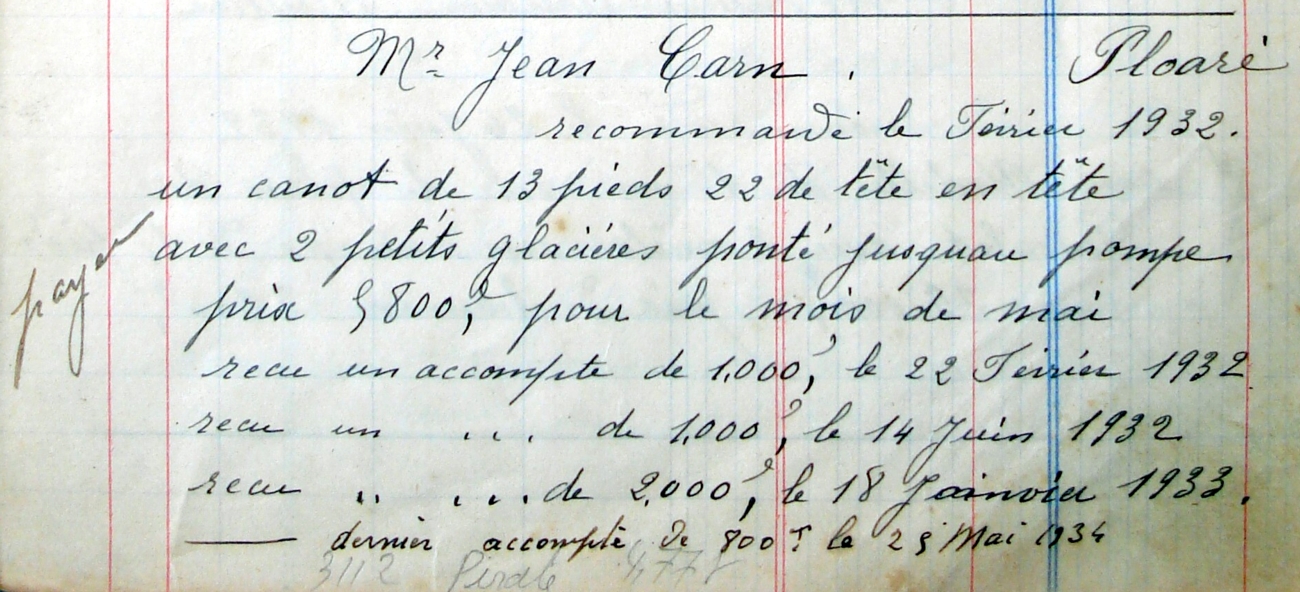 Mr Jean Carn. Ploaré
recommandé le Février 1932.
un canot de 13 pieds 22 de tête en tête
avec 2 petits glaciéres ponté jusquau pompe
payé
prix 5800, pour le mois de mai
recu un accompte de 1,000, le 22 Février 1932
recu un ... de 1,000, le 14 Juin 1932
recu " ... de 2,000, le 18 Jainvier 1933.
— dernier accompte de 800f le 25 Mai 1934
3112